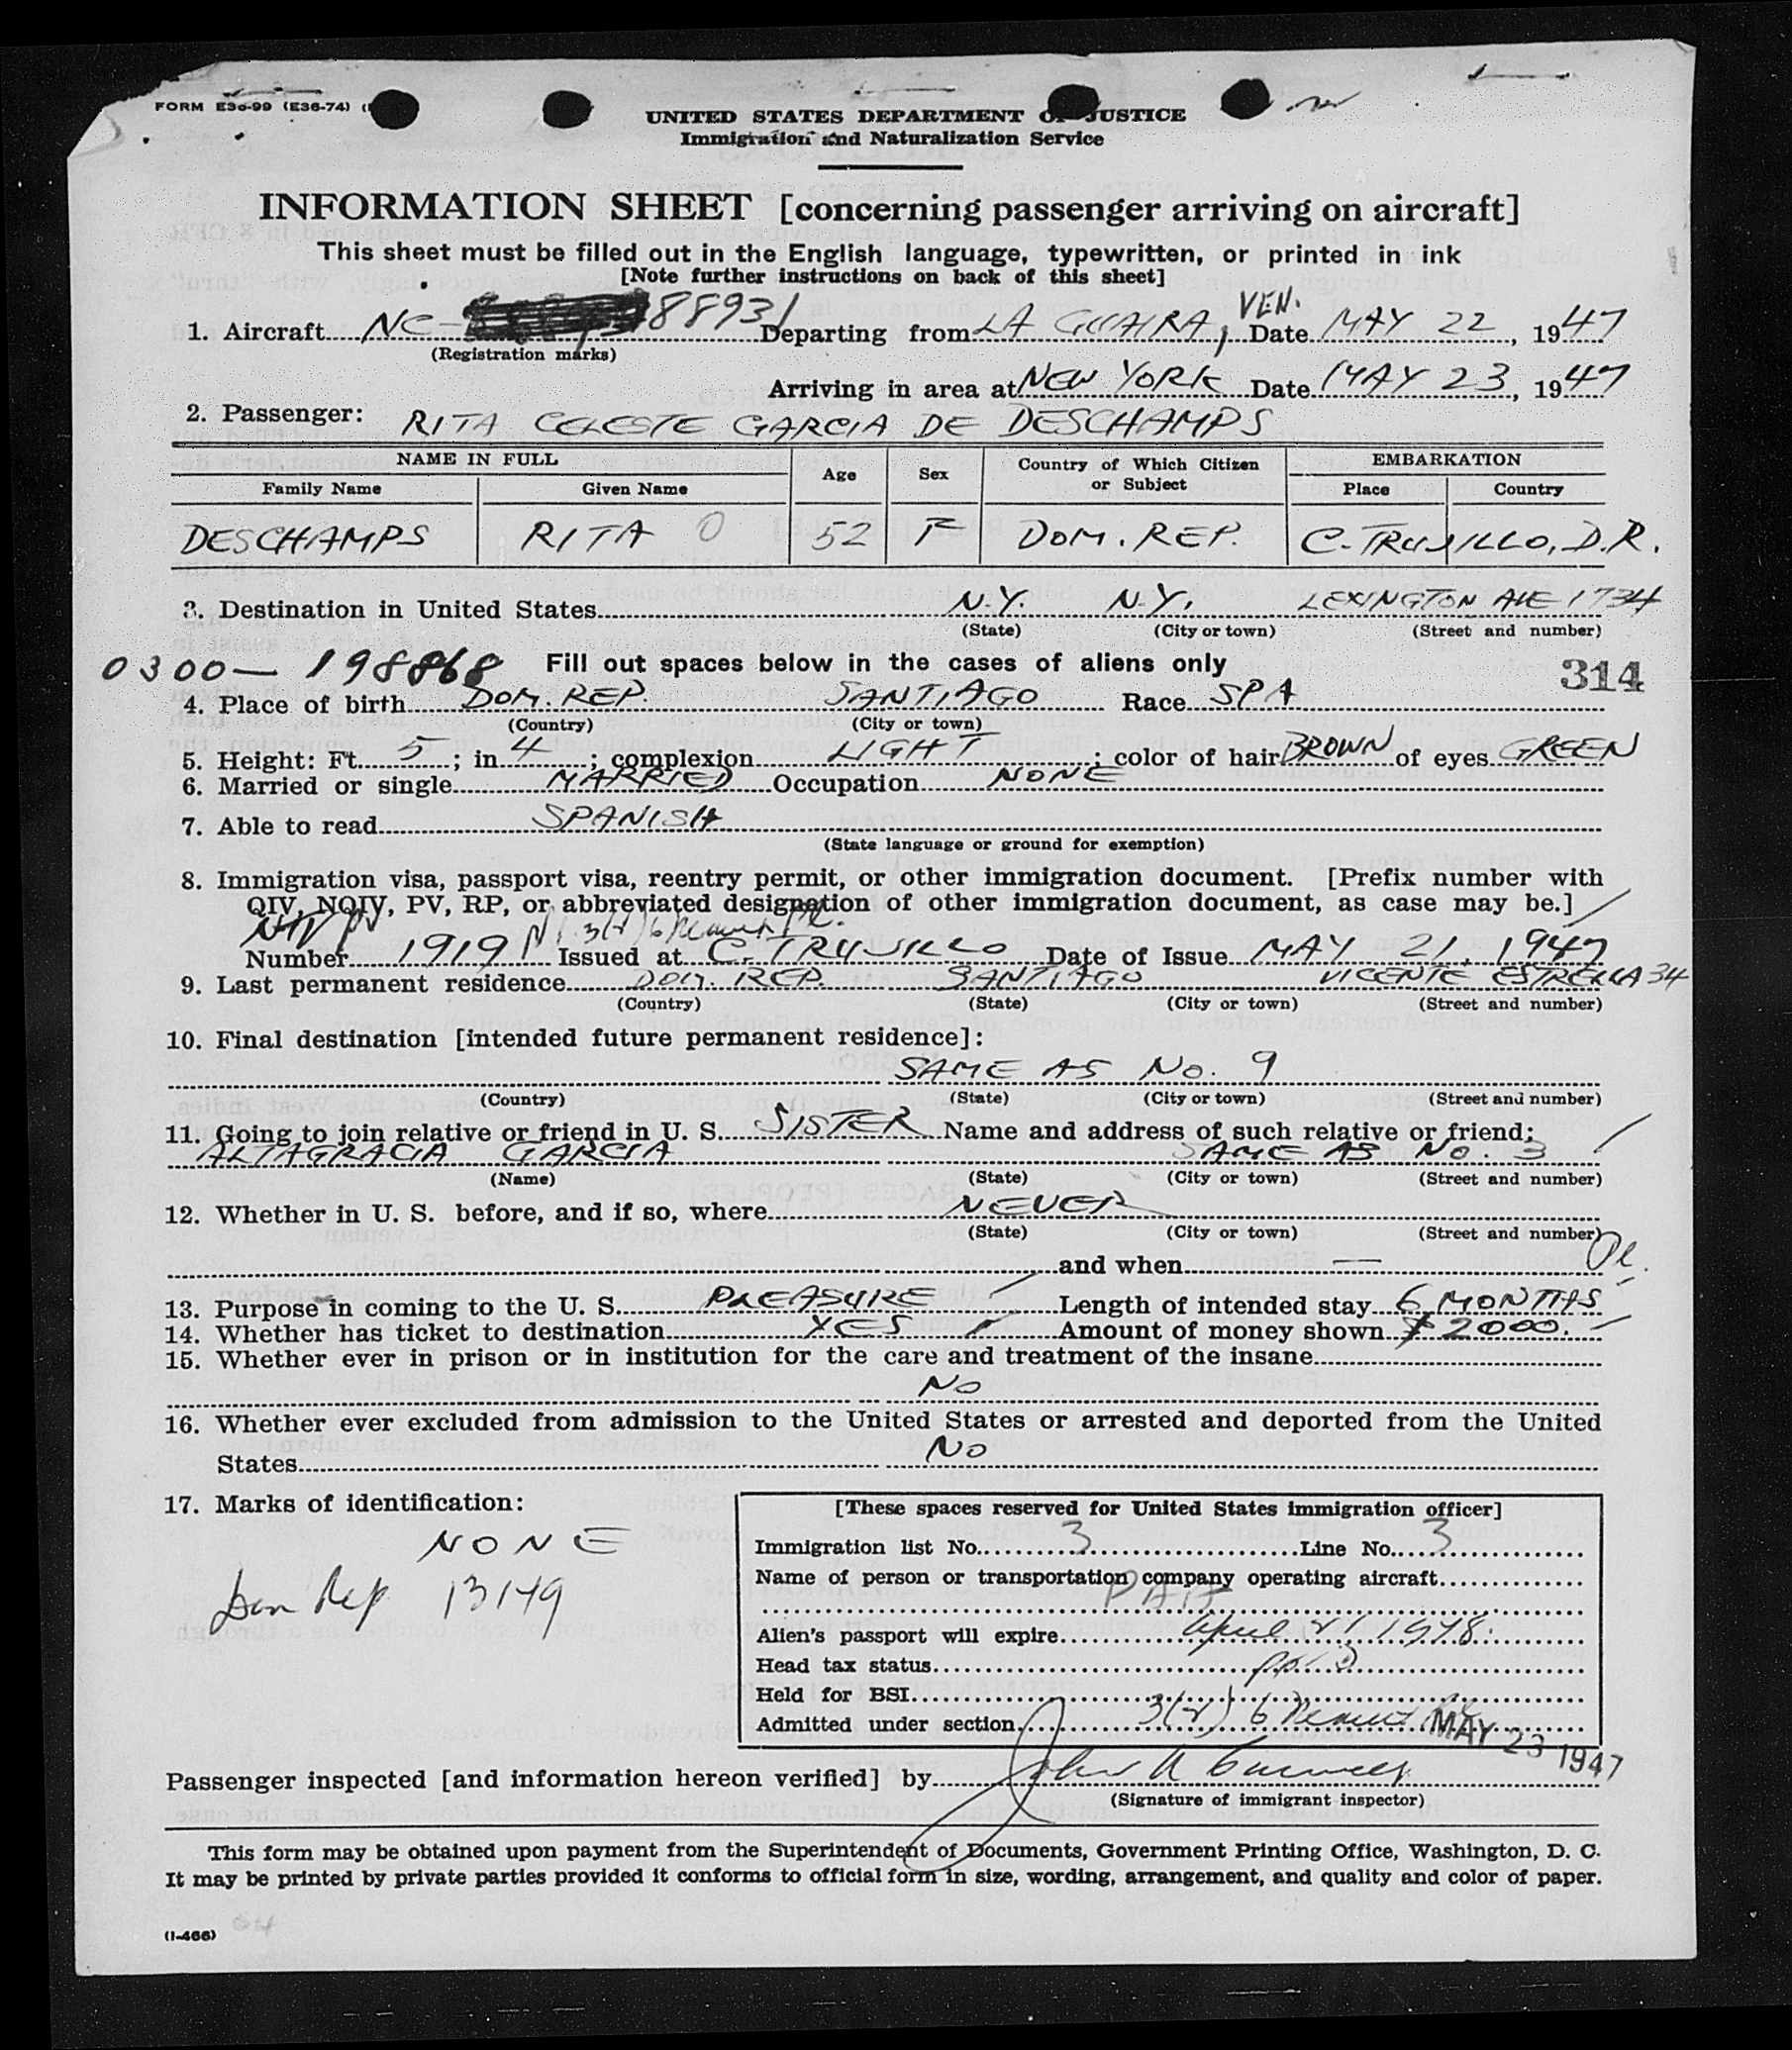 FORM E36-99 (E36-74)
UNITED STATES DEPARTMENT OF JUSTICE
Immigration and Naturalization Service
INFORMATION SHEET [concerning passenger arriving on aircraft]
This sheet must be filled out in the English language, typewritten, or printed in ink
[Note further instructions on back of this sheet]
1. Aircraft NC- 88931 Departing from LA GUAIRA, VEN. Date MAY 22, 1947
(Registration marks)
Arriving in area at NEW YORK Date MAY 23, 1947
2. Passenger: RITA CELESTE GARCIA DE DESCHAMPS
NAME IN FULL Age Sex Country of Which Citizen or Subject EMBARKATION
Family Name Given Name Place Country
DESCHAMPS RITA 0 52 F DOM. REP. C. TRUJILLO, D.R.
3. Destination in United States N.Y. N.Y. LEXINGTON AVE 1734
(State) (City or town) (Street and number)
0300- 198868 Fill out spaces below in the cases of aliens only 314
4. Place of birth DOM. REP. SANTIAGO Race SPA
(Country) (City or town)
5. Height: Ft. 5; in 4; complexion LIGHT; color of hair BROWN of eyes GREEN
6. Married or single MARRIED Occupation NONE
7. Able to read SPANISH
(State language or ground for exemption)
8. Immigration visa, passport visa, reentry permit, or other immigration document. [Prefix number with
QIV, NQIV, PV, RP, or abbreviated designation of other immigration document, as case may be.]
PV 3(2)
Number 1919 Issued at C. TRUJILLO Date of Issue MAY 21, 1947
9. Last permanent residence DOM. REP. SANTIAGO VICENTE ESTRELLA 34
(Country) (State) (City or town) (Street and number)
10. Final destination [intended future permanent residence]:
SAME AS No. 9
(Country) (State) (City or town) (Street and number)
11. Going to join relative or friend in U. S. SISTER Name and address of such relative or friend:
ALTAGRACIA GARCIA SAME AS No. 3
(Name) (State) (City or town) (Street and number)
12. Whether in U. S. before, and if so, where NEVER
(State) (City or town) (Street and number)
and when —
13. Purpose in coming to the U. S. PLEASURE Length of intended stay 6 MONTHS
14. Whether has ticket to destination YES Amount of money shown $2000.
15. Whether ever in prison or in institution for the care and treatment of the insane
No
16. Whether ever excluded from admission to the United States or arrested and deported from the United
States No
17. Marks of identification:
NONE
Dom Rep 13149
[These spaces reserved for United States immigration officer]
Immigration list No. 3 Line No. 3
Name of person or transportation company operating aircraft
PAA
Alien's passport will expire April 21 1948
Head tax status
Held for BSI
Admitted under section 3(2) 6
MAY 23 1947
Passenger inspected [and information hereon verified] by John
(Signature of immigrant inspector)
This form may be obtained upon payment from the Superintendent of Documents, Government Printing Office, Washington, D. C.
It may be printed by private parties provided it conforms to official form in size, wording, arrangement, and quality and color of paper.
(I-466)